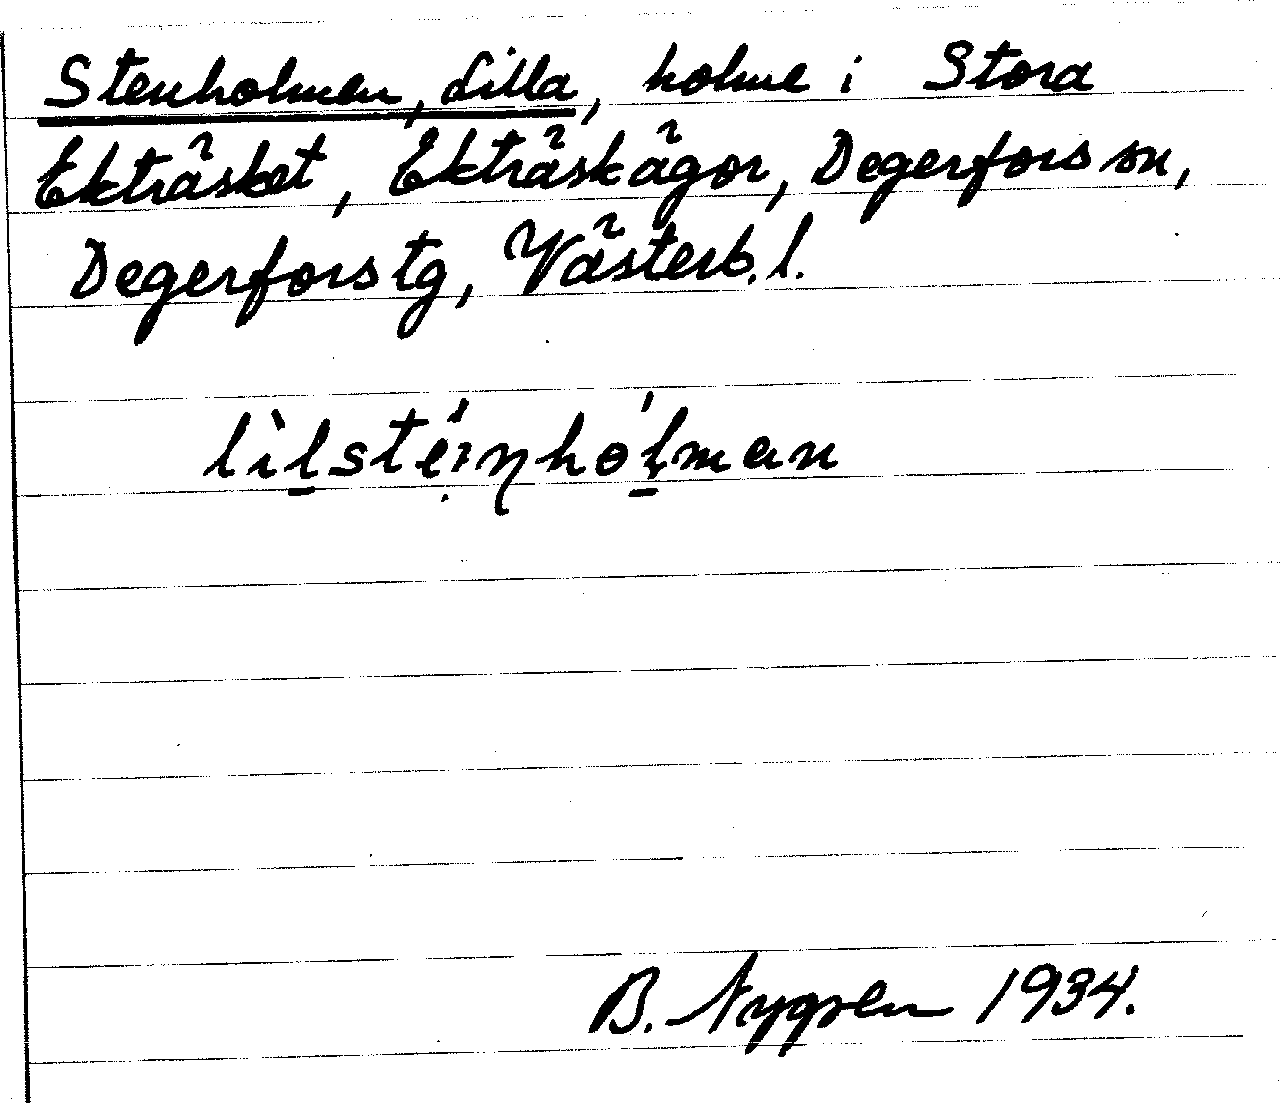 Stenholmen, Lilla, holme i Stora
Ekträsket, Ekträskägor, Degerfors sn,
Degerfors tg, Västerb. l.
lìlstéi̯ŋhólman
B. Nygren 1934.